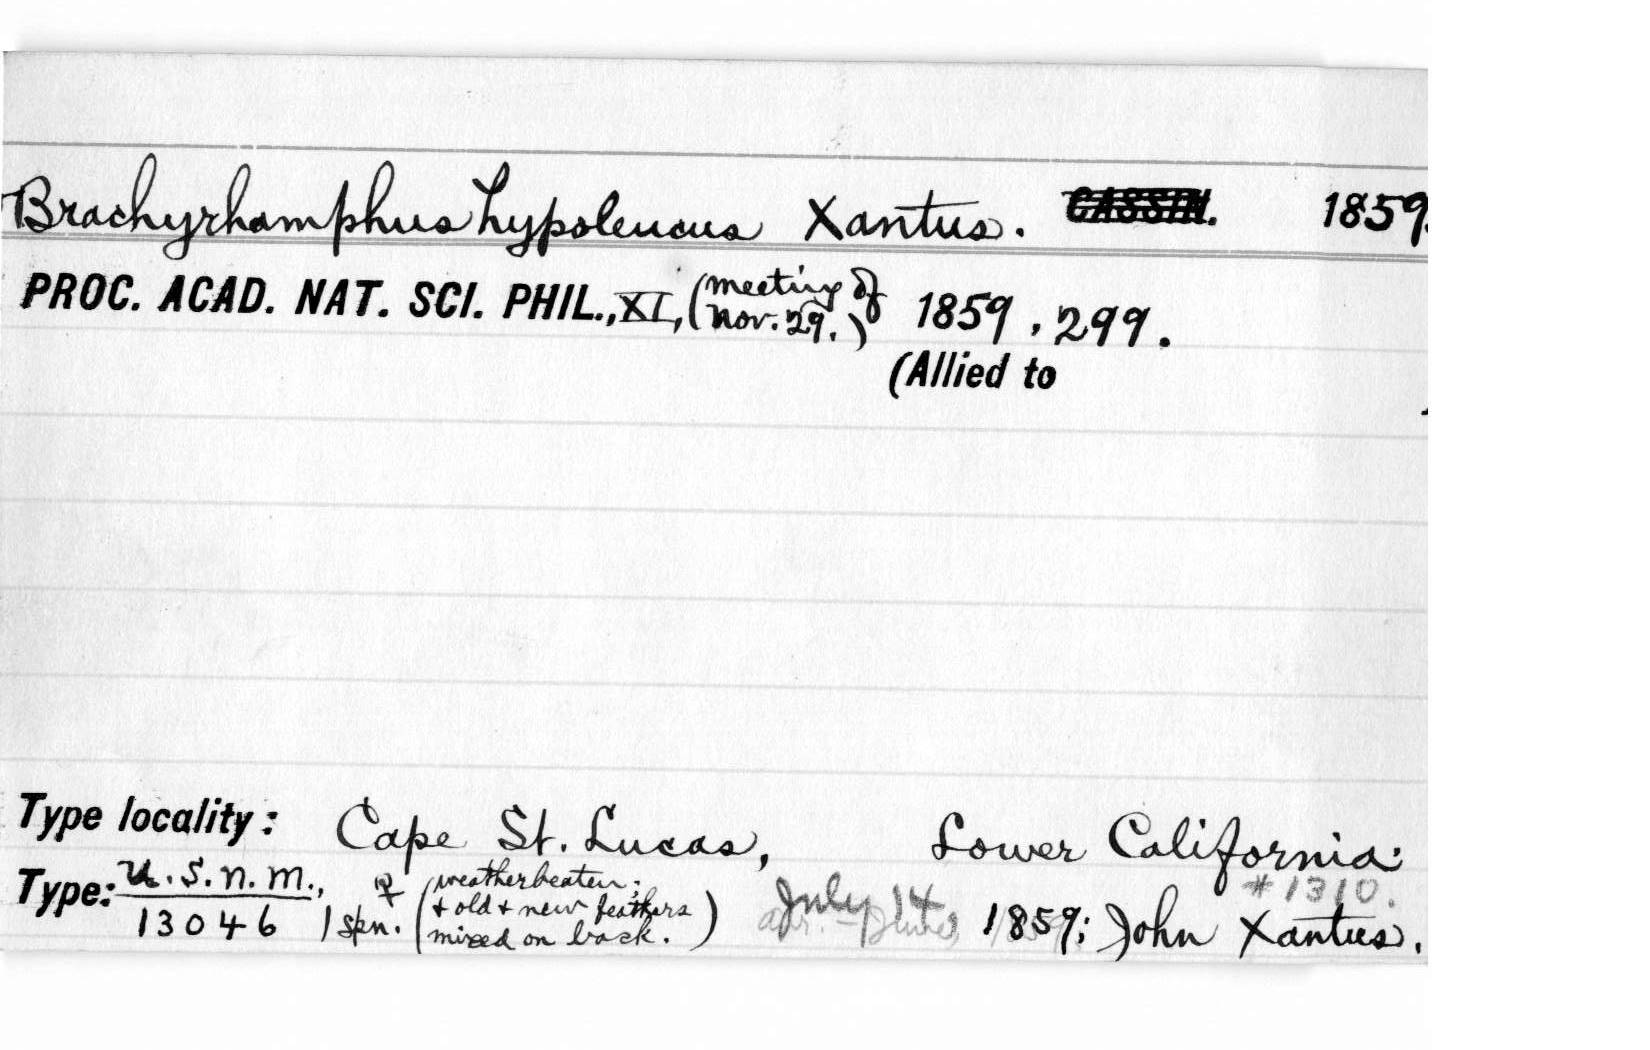 Brachyrhamphus hypoleucus Xantus. CASSIN. 1859.
PROC. ACAD. NAT. SCI. PHIL., XI, (meeting of Nov. 29.) 1859, 299.
(Allied to
Type locality: Cape St. Lucas, Lower California:
#1310.
Type: U.S.N.M., 13046 ♀ 1 spn. (weatherbeaten; + old + new feathers mixed on back.) July 14 1859; John Xantus.